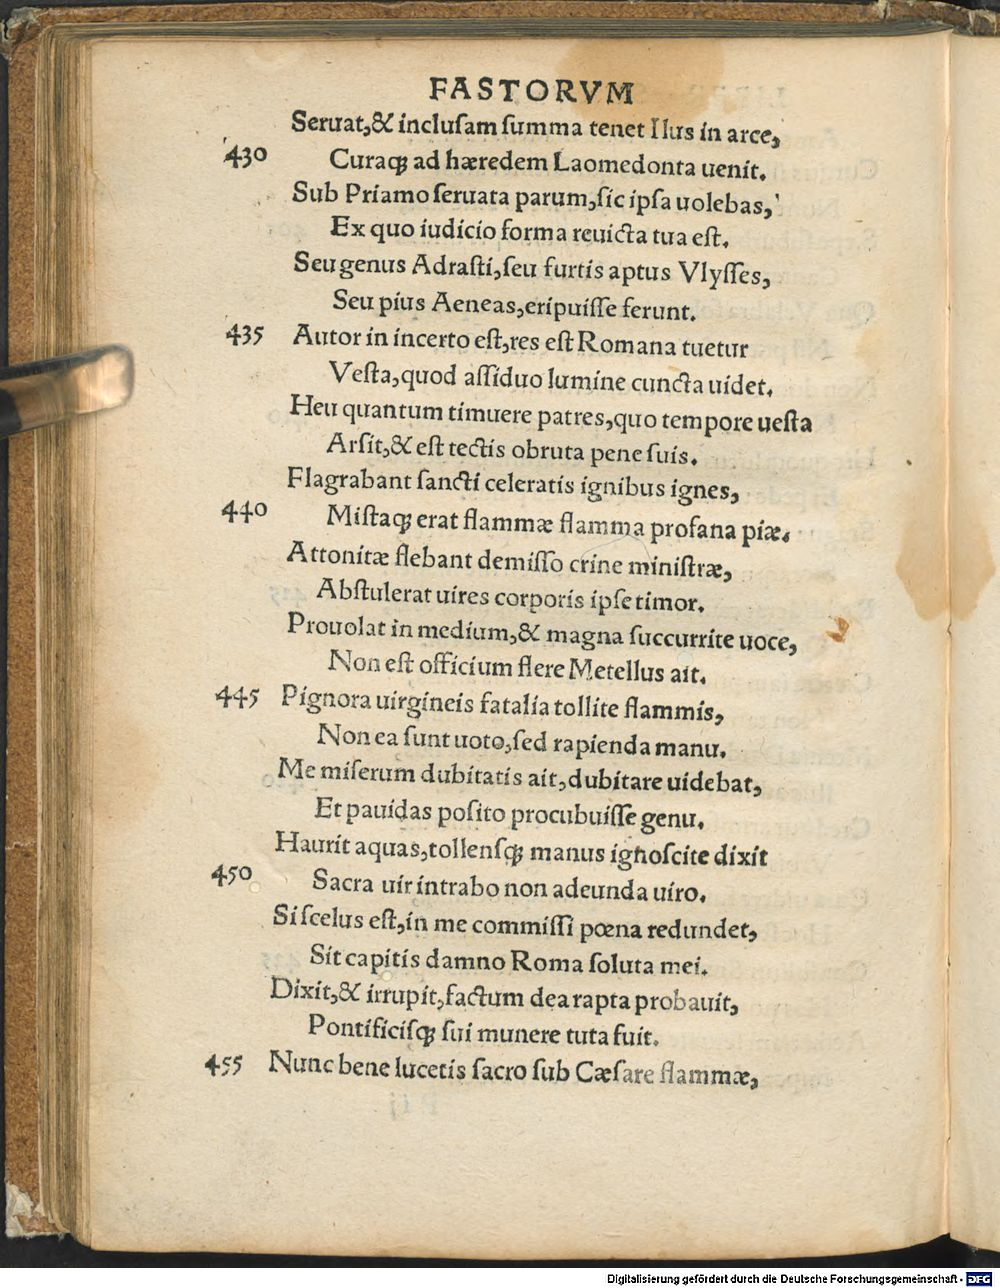 FASTORVM
Seruat,& incluſam ſumma tenet Ilus in arce,
430 Curaqꝫ ad hæredem Laomedonta uenit.
Sub Priamo ſeruata parum,ſic ipſa uolebas,
Ex quo iudicio forma reuicta tua eſt.
Seu genus Adraſti,ſeu furtis aptus Vlyſſes,
Seu pius Aeneas,eripuiſſe ferunt.
435 Autor in incerto eſt,res eſt Romana tuetur
Veſta,quod aſſiduo lumine cuncta uidet.
Heu quantum timuere patres,quo tempore ueſta
Arſit,& eſt tectis obruta pene ſuis.
Flagrabant ſancti celeratis ignibus ignes,
440 Miſtaqꝫ erat flammæ flamma profana piæ.
Attonitæ flebant demiſſo crine miniſtræ,
Abſtulerat uires corporis ipſe timor.
Prouolat in medium,& magna ſuccurrite uoce,
Non eſt officium flere Metellus ait.
445 Pignora uirgineis fatalia tollite flammis,
Non ea ſunt uoto,ſed rapienda manu.
Me miſerum dubitatis ait,dubitare uidebat,
Et pauidas poſito procubuiſſe genu.
Haurit aquas,tollenſqꝫ manus ignoſcite dixit
450 Sacra uir intrabo non adeunda uiro.
Si ſcelus eſt,in me commiſſi pœna redundet,
Sit capitis damno Roma ſoluta mei.
Dixit,& irrupit,factum dea rapta probauit,
Pontificiſqꝫ ſui munere tuta fuit.
455 Nunc bene lucetis ſacro ſub Cæſare flammæ,
Digitalisierung gefördert durch die Deutsche Forschungsgemeinschaft - DFG